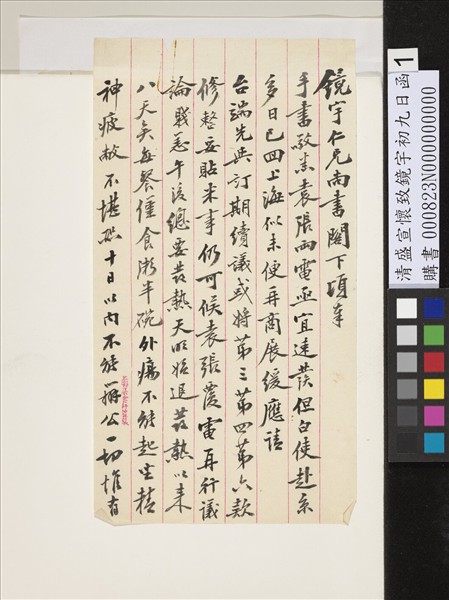 鏡宇仁兄尚書閣下頃奉
手書敬悉袁張兩電亟宜速發但白使赴京
多日已回上海似未便再商展緩應請
台端先與訂期續議或將第三第四第六款
修整妥貼米事仍可候袁張覆電再行議
論賤恙午後總要發熱天明始退發熱以來
八天矣每餐僅食粥半碗外瘍不能起坐精
神疲敝不堪恐十日以內不能辦公一切惟有
清盛宣懷致鏡宇初九日函
購書 000823N000000000
1